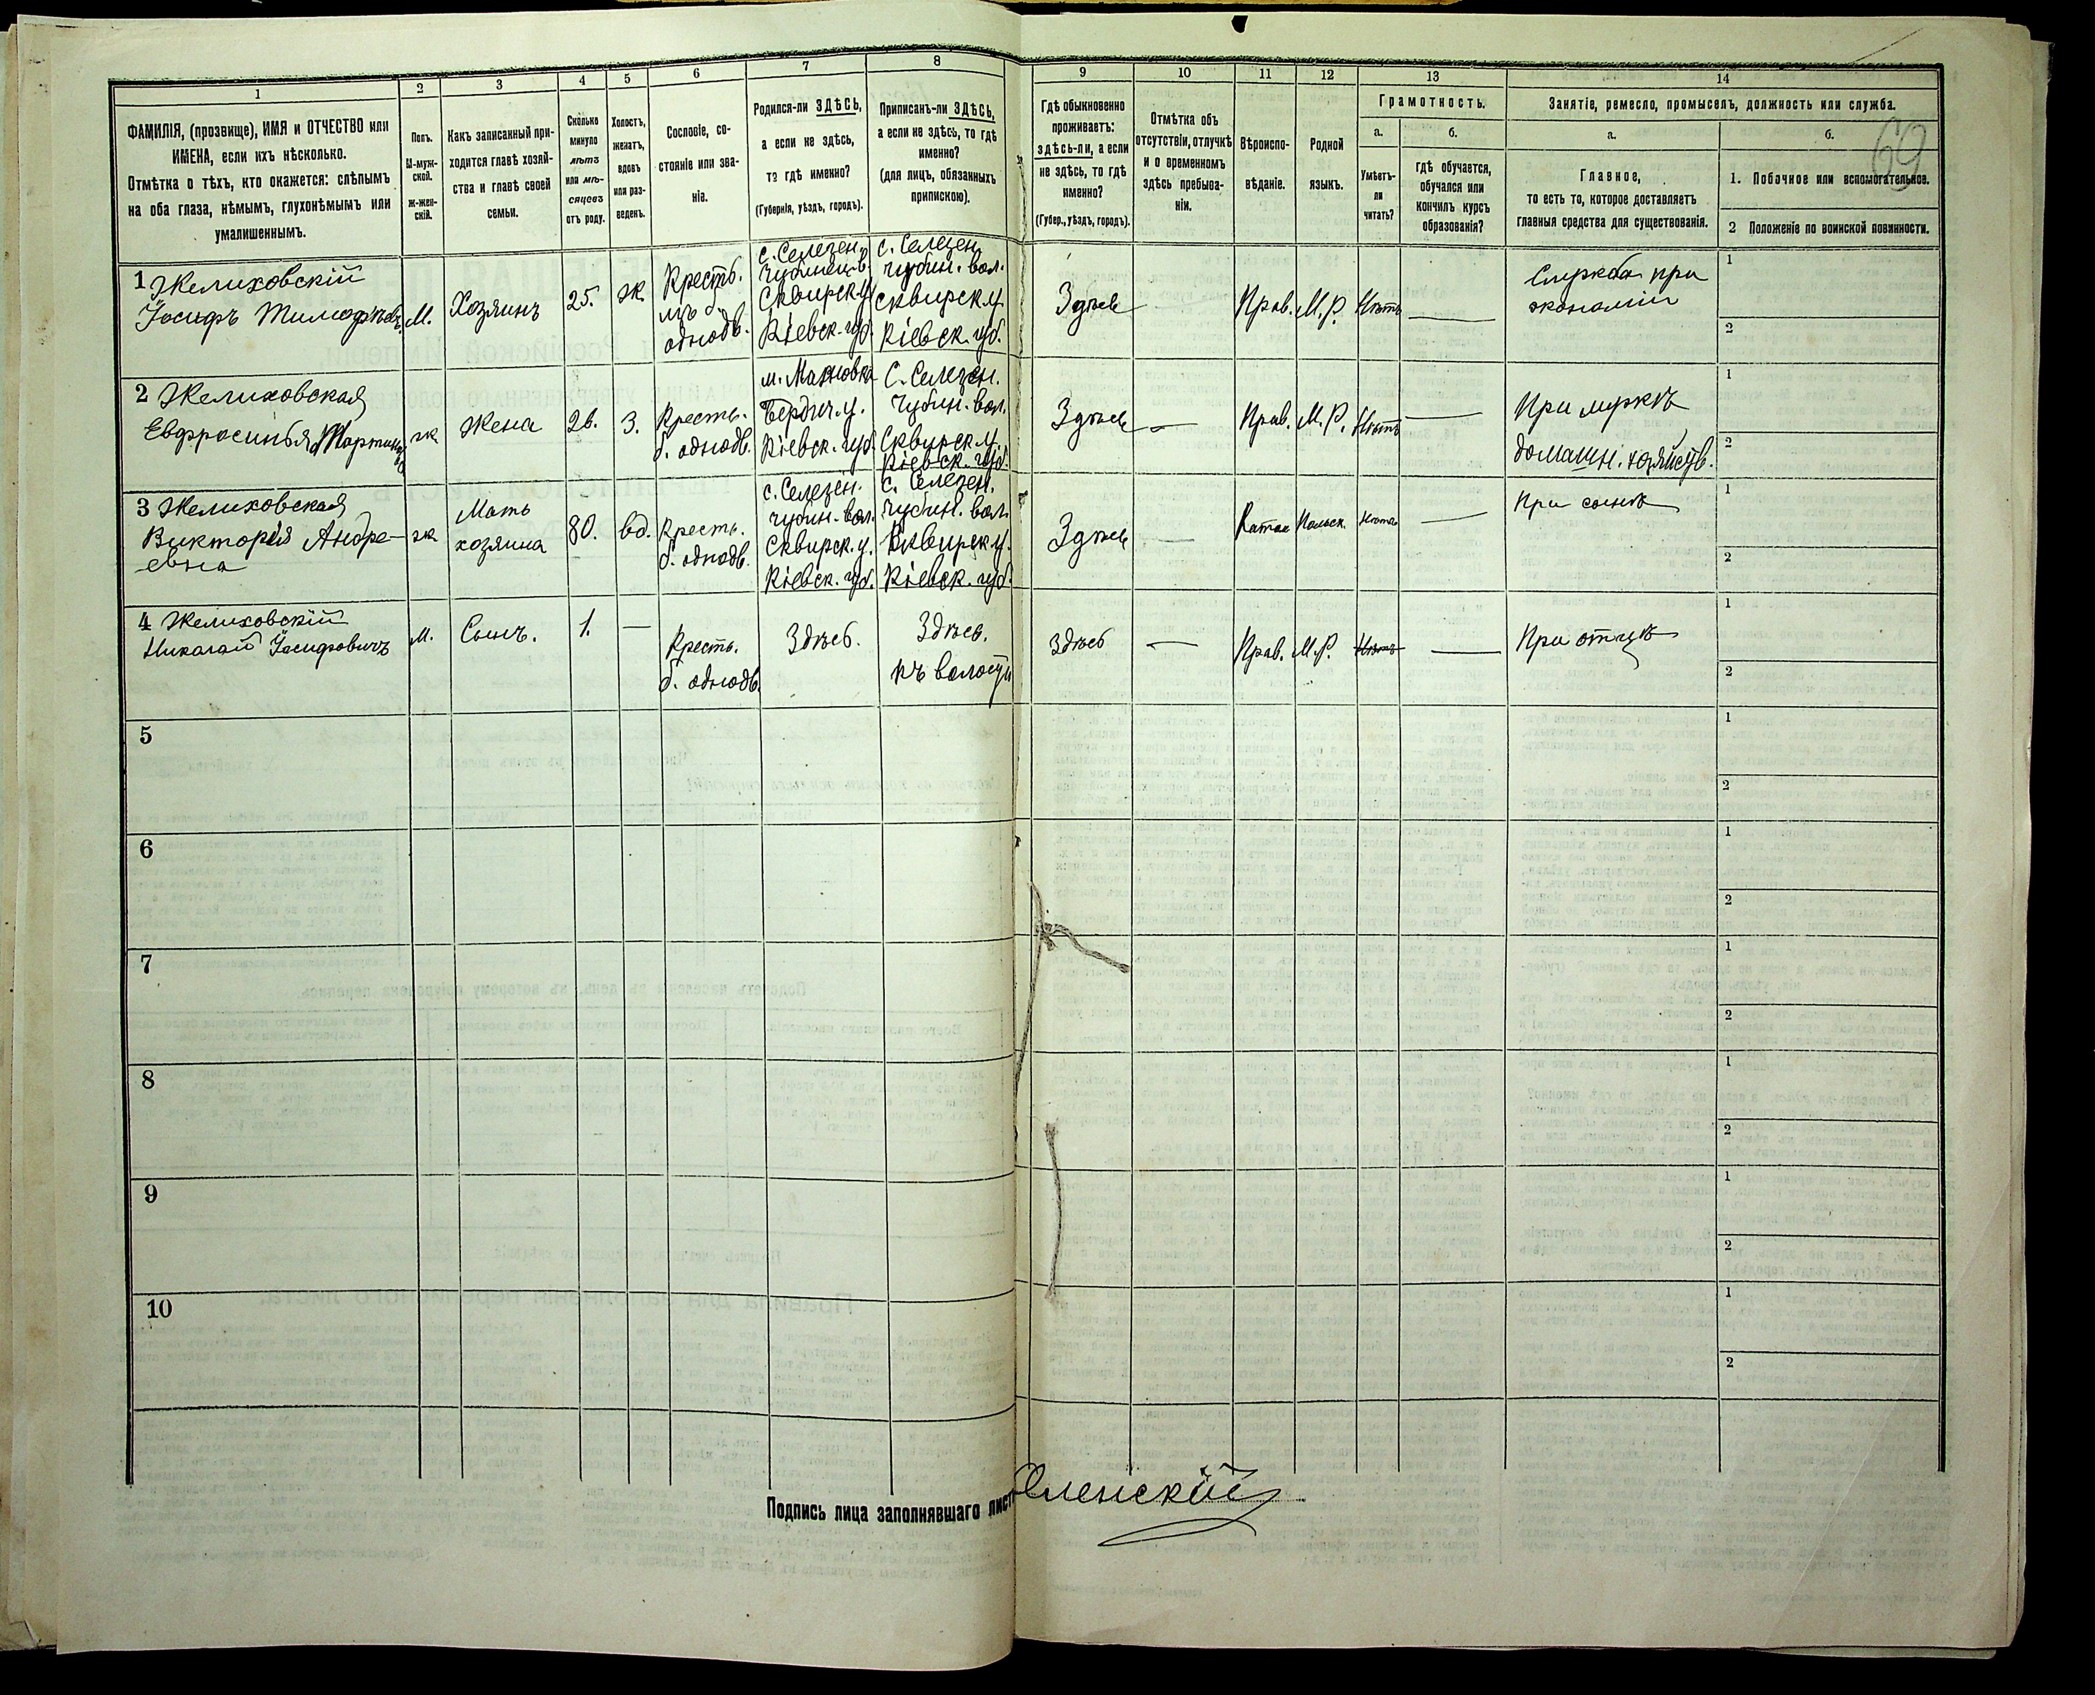 1
ФАМИЛІЯ, (прозвище), ИМЯ и ОТЧЕСТВО или
ИМЕНА, если ихъ нѣсколько.
Отмѣтка о тѣхъ, кто окажется: слѣпымъ
на оба глаза, нѣмымъ, глухонѣмымъ или
умалишеннымъ.
2
Полъ.
М-муж-
ской.
Ж-жен-
скій.
3
Какъ записанный при-
ходится главѣ хозяй-
ства и главѣ своей
семьи.
4
Сколько
минуло
лѣтъ
или мѣ-
сяцевъ
отъ роду.
5
Холостъ,
женатъ,
вдовъ
или раз-
веденъ.
6
Сословіе, со-
стояніе или зва-
ніе.
7
Родился-ли ЗДѢСЬ,
а если не здѣсь,
то гдѣ именно?
(Губернія, уѣздъ, городъ).
8
Приписанъ-ли ЗДѢСЬ,
а если не здѣсь, то гдѣ
именно?
(для лицъ, обязанныхъ
припискою).
9
Гдѣ обыкновенно
проживаетъ:
здѣсь-ли, а если
не здѣсь, то гдѣ
именно?
(Губер., уѣздъ, городъ).
10
Отмѣтка объ
отсутствіи, отлучкѣ
и о временномъ
здѣсь пребыва-
ніи.
11
Вѣроиспо-
вѣданіе.
12
Родной
языкъ.
13
Грамотность.
а.
Умѣетъ-
ли
читать?
б.
гдѣ обучается,
обучался или
кончилъ курсъ
образованія?
14
Занятіе, ремесло, промыселъ, должность или служба.
а.
Главное,
то есть то, которое доставляетъ
главныя средства для существованія.
б.
1. Побочное или вспомогательное.
2 Положеніе по воинской повинности.
69
1 Желиховскій
Іосифъ
М.
Хозяинъ
25.
Ж.
Крестъ.
изъ б.
однодв.
с. Селезен.
Сквирск. у.
Кіевск. губ.
с. Селезен.
Чубин. вол.
Сквирск. у.
Кіевск. губ.
Здѣсь
Прав.
М. Р.
Нѣтъ
Служба при
экономіи
1
2
2 Желиховская
Евфросинья
ж
Жена
З.
Кресть.
б. однодв.
м. Махновка
Бердич. у.
Кіевск. губ.
С. Селезен.
Чубин. вол.
Сквирск. у.
Кіевск. губ.
Здѣсь
—
Прав.
М. Р.
Нѣтъ
—
При мужѣ
домашн. хозяйств.
1
2
3 Желиховская
Викторія Андре-
евна
ж
Мать
хозяина
80.
вд.
Кресть.
б. однодв.
с. Селезен.
Чубин. вол.
Сквирск. у.
Кіевск. губ.
с. Селезен.
Чубин. вол.
Сквирск. у.
Кіевск. губ.
Здѣсь
—
Катол
Польск.
Нѣтъ
—
При сынѣ
1
2
4 Желиховскій
Николай Іосифовичъ
М.
Сынъ.
1.
—
Кресть.
б. однодв.
Здѣсь.
Здѣсь.
къ волости
Здѣсь
—
Прав.
М. Р.
Нѣтъ
—
При отцѣ
1
2
5
1
2
6
1
2
7
1
2
8
1
2
9
1
2
10
1
2
Подпись лица заполнявшаго лист